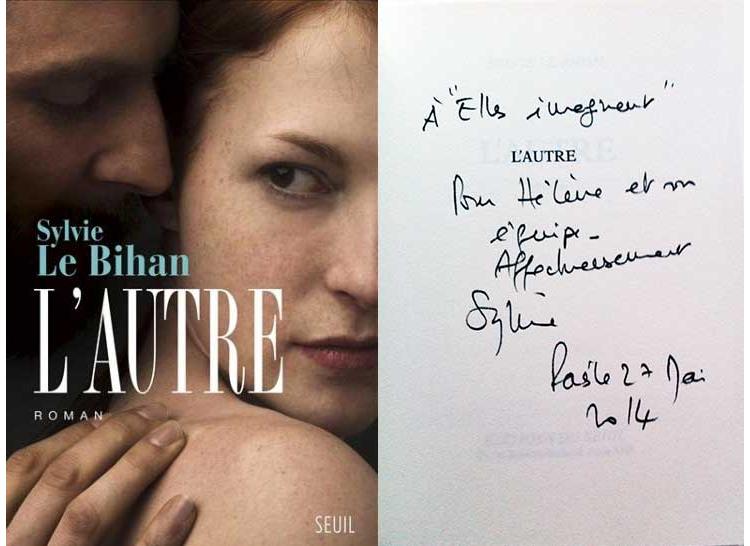 Sylvie
Le Bihan
L'AUTRE
ROMAN
SEUIL
À "Elles imaginent"
L'AUTRE
Pour Hélène et son
équipe -
Affectueusement
Sylvie
Paris le 27 Mai
2014